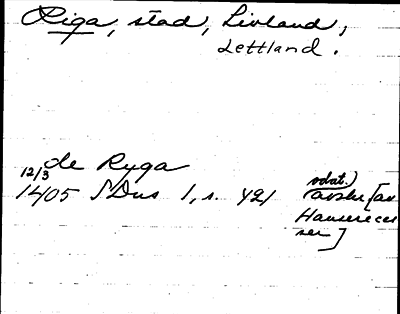 Riga, stad, Livland,
Lettland.
de Ryga
12/3
1405 SDns 1, s. 421 (avskr. [av
odat.)
Hansereces
ser]